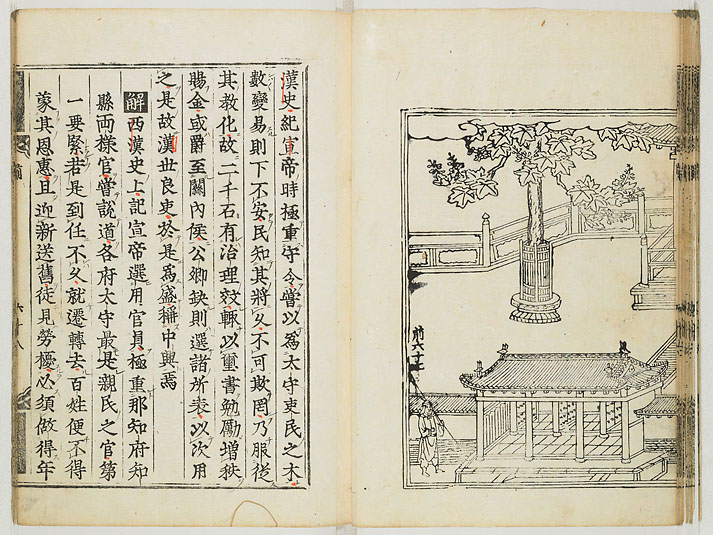 前六十七
漢史紀宣帝時極重守令嘗以爲太守吏民之本
數變易則下不安民知其將久不可欺罔乃服從
其教化故二千石有治理效輒以璽書勉勵增秩
賜金或爵至關內侯公卿缺則選諸所表以次用
之是故漢世良吏於是爲盛稱中興焉
解西漢史上記宣帝選用官員極重那知府知
縣兩樣官嘗說道各府太守最是親民之官第
一要緊若是到任不久就遷轉去百姓便不得
蒙其恩惠且迎新送舊徒見勞擾必須做得年
六十八